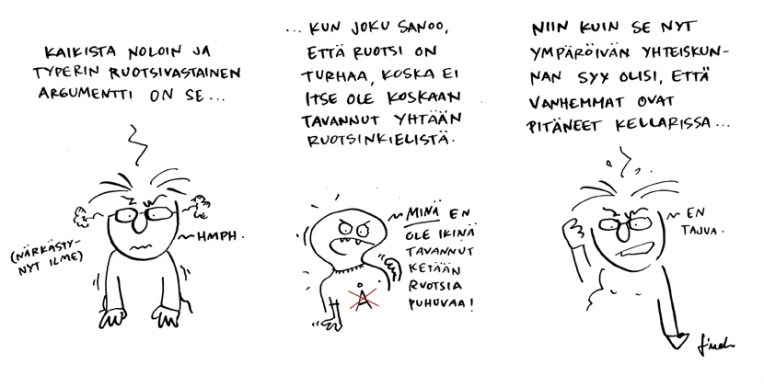 KAIKISTA NOLOIN JA
TYPERIN RUOTSIVASTAINEN
ARGUMENTTI ON SE...
(NÄRKÄSTY-
NYT ILME)
HMPH.
...KUN JOKU SANOO,
ETTÄ RUOTSI ON
TURHAA, KOSKA EI
ITSE OLE KOSKAAN
TAVANNUT YHTÄÄN
RUOTSINKIELISTÄ.
MINÄ EN
OLE IKINÄ
TAVANNUT
KETÄÄN
RUOTSIA
PUHUVAA!
Å
NIIN KUIN SE NYT
YMPÄRÖIVÄN YHTEISKUN-
NAN SYY OLISI, ETTÄ
VANHEMMAT OVAT
PITÄNEET KELLARISSA...
EN
TAJUA.